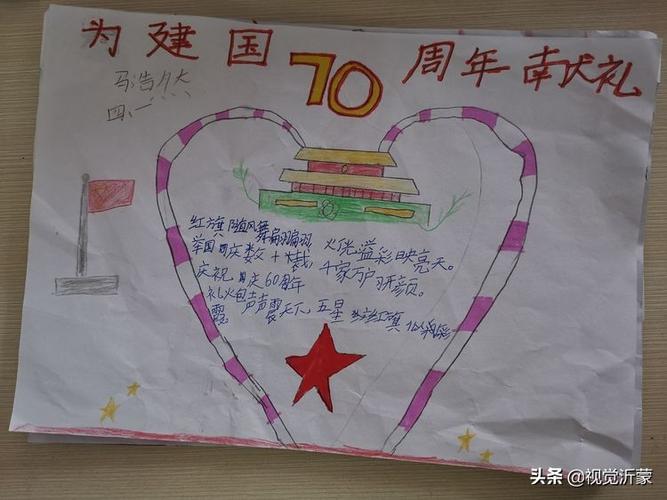 为建国70周年献礼
马浩然
四、一
红旗随风舞翩翩，火优溢彩映亮天。
举国同庆数十载，千家万户讶颜。
庆祝国庆60周年
礼火包声声震天下，五星红旗
霞
头条 @视觉沂蒙